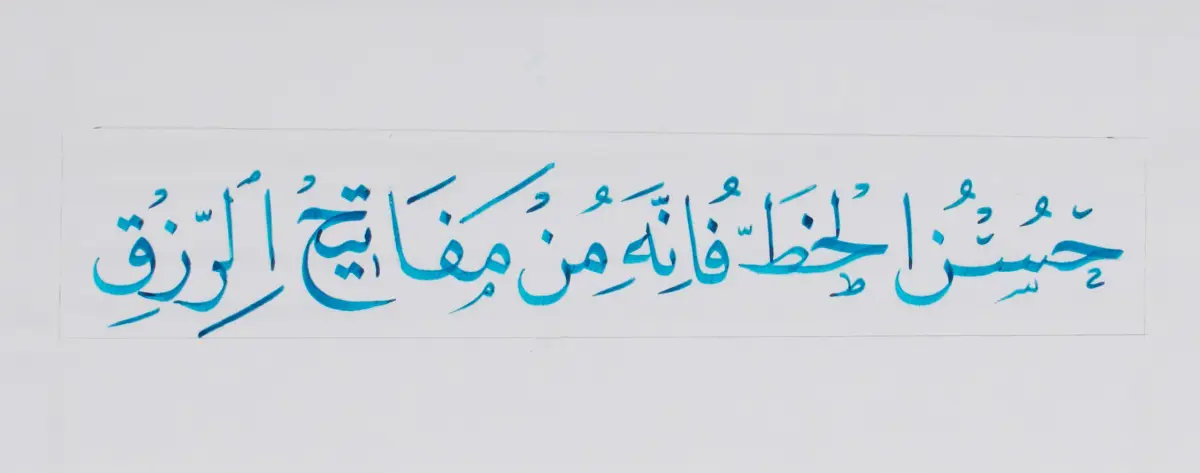 حسن الخط فانه من مفاتيح الرزق